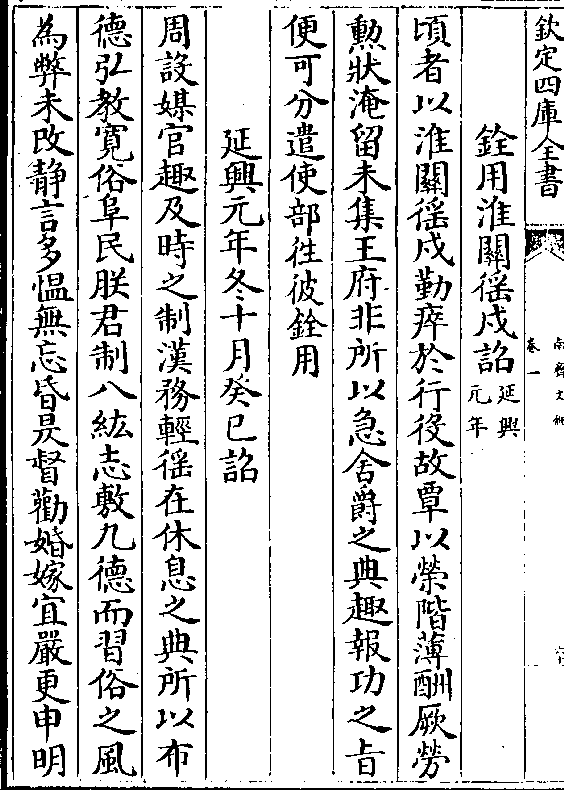 欽定四庫全書
卷一
銓用淮關徭戍詔延興元年
頃者以淮關徭戍勤瘁於行役故覃以榮階薄酬厥勞
勲狀淹留未集王府非所以急舍爵之典趣報功之旨
便可分遣使部徃彼銓用
延興元年冬十月癸巳詔
周設媒官趣及時之制漢務輕徭在休息之典所以布
德弘教寛俗阜民朕君制八紘志敷九德而習俗之風
為弊未改静言多愠無忘昏昃督勸婚嫁宜嚴更申明